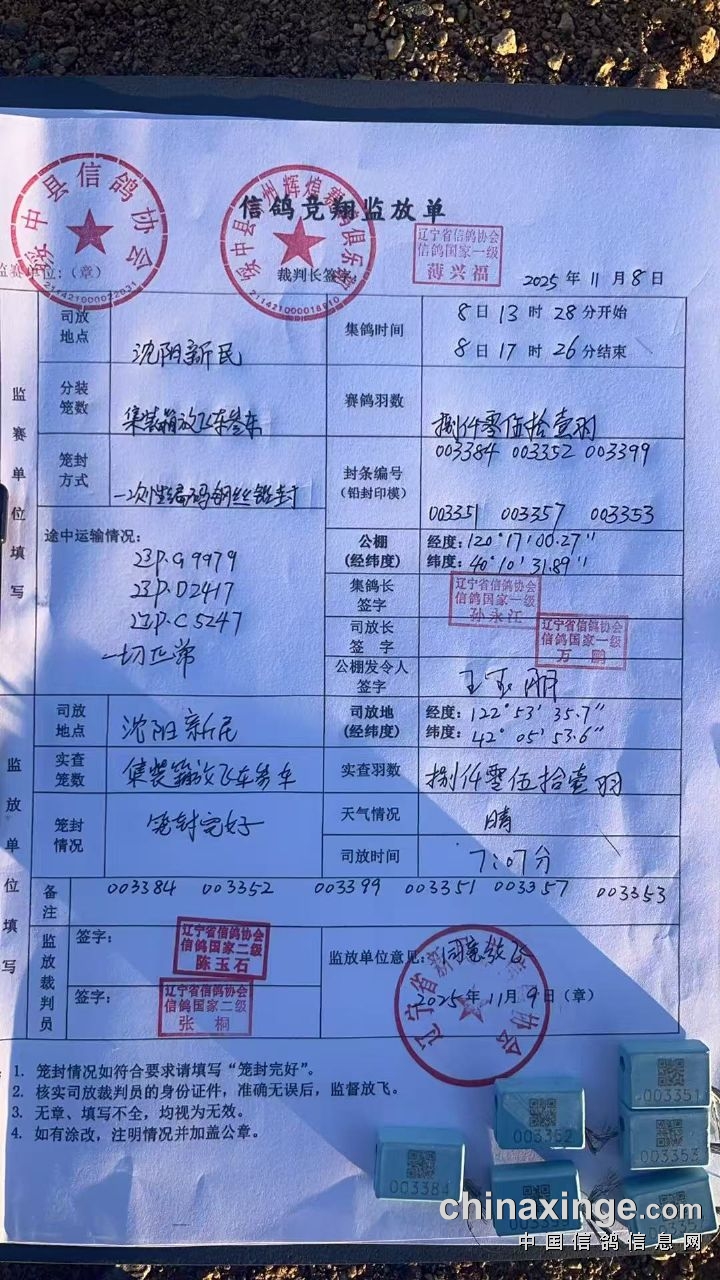 信鸽竞翔监放单
绥中县信鸽协会
211421000022031
监赛单位:(章)
211421000018910
裁判长签字
辽宁省信鸽协会
信鸽国家一级
薄兴福
2025年11月8日
监赛单位填写
司放地点
沈阳新民
集鸽时间
8日13时28分开始
8日17时26分结束
分装笼数
集装箱放飞车叁车
赛鸽羽数
捌仟零伍拾壹羽
笼封方式
一次性编码钢丝铅封
封条编号
(铅封印模)
003384 003352 003399
003351 003357 003353
途中运输情况:
辽P.G9979
辽P.D2417
辽P.C5247
一切正常
公棚
(经纬度)
经度:120°17'00.27"
纬度:40°10'31.89"
集鸽长签字
辽宁省信鸽协会
信鸽国家一级
孙永江
司放长签字
辽宁省信鸽协会
信鸽国家一级
万鹏
公棚发令人签字
监放单位填写
司放地点
沈阳新民
司放地
(经纬度)
经度:122°53'35.7"
纬度:42°05'53.6"
实查笼数
集装箱放飞车叁车
实查羽数
捌仟零伍拾壹羽
笼封情况
笼封完好
天气情况
晴
司放时间
7:07分
备注
003384 003352 003399 003351 003357 003353
监放裁判员
签字:
辽宁省信鸽协会
信鸽国家二级
陈玉石
签字:
辽宁省信鸽协会
信鸽国家二级
张桐
监放单位意见:同意放飞
2025年11月9日(章)
1. 笼封情况如符合要求请填写“笼封完好”。
2. 核实司放裁判员的身份证件,准确无误后,监督放飞。
3. 无章、填写不全,均视为无效。
4. 如有涂改,注明情况并加盖公章。
003351
003352
003353
003384
chinaxinge.com
中国信鸽信息网